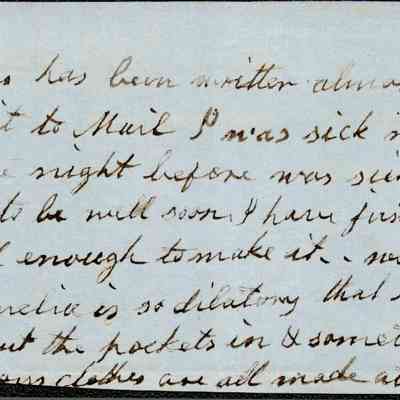 has been written almos
it to Mail I was sick
night before was sick
to be well soon, I have jus
enough to make it..
is so dilatory that
the pockets in & some
clothes are all made